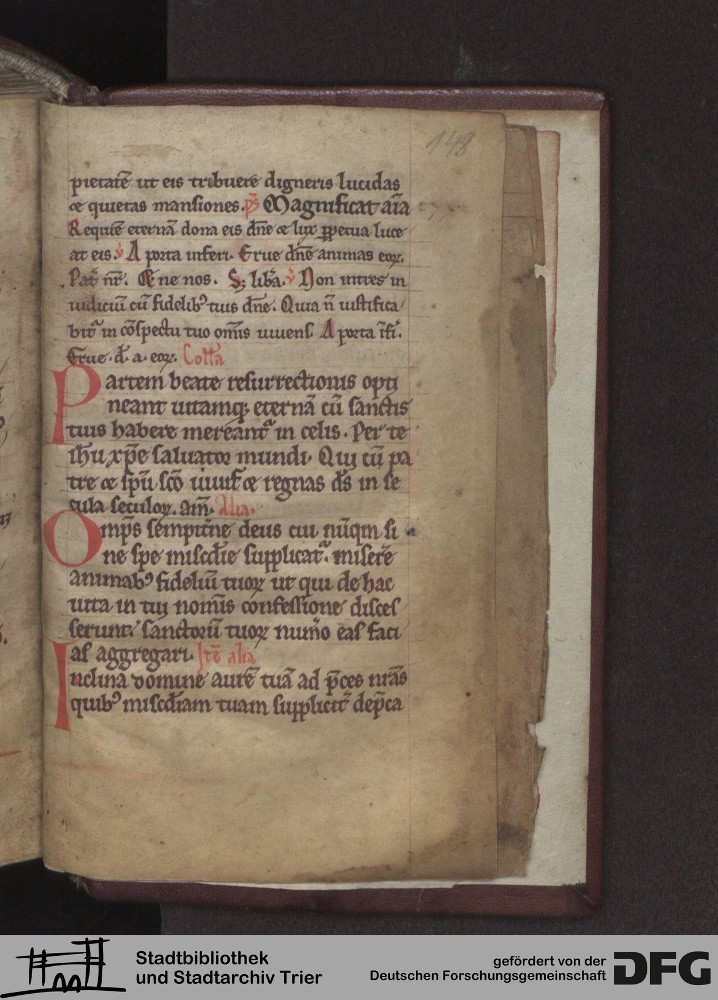 148
pietatē ut eis tribuere digneris lucidas
& quietas mansiones. p̄s Magnificat aīa
Requiē eternā dona eis dn̄e & lux ꝑpetua luce
at eis. v̓ A porta inferi. Erue dn̄e animas eoꝝ.
Pat̓ nr̄. Et ne nos. S; lib̓a. v̓ Non intres in
iudiciū cū fidelib⁹ tuis dn̄e. Quia n̄ iustifica
bit᷑ in cōspectu tuo omīs uiuens. A porta īf̓i.
Erue. d̄. a. eoꝝ. Coll̄a
Partem beate resurrectionis opti
neant uitamq; eternā cū sanctis
tuis habere mereant᷑ in celis. Per te
ih̄u xp̄e saluator mundi. Qui cū pa
tre & sp̄u sc̄o uiuis & regnas d̄s in se
cula seculoꝝ. am̄. Alia.
Omp̄s sempit̓ne deus cui nūqm̄ si
ne spe misc̄die supplicat᷑. miserē
animab⁹ fideliū tuoꝝ ut qui de hac
uita in tui nomīs confessione disces
serunt. sanctorū tuoꝝ num̓o eas faci
as aggregari. Itē alia
Inclina domine aurē tuā ad p̄ces nrās
quib⁹ misc̄diam tuam supplicit̓ dep̄ca
Stadtbibliothek
und Stadtarchiv Trier
gefördert von der
Deutschen Forschungsgemeinschaft
DFG